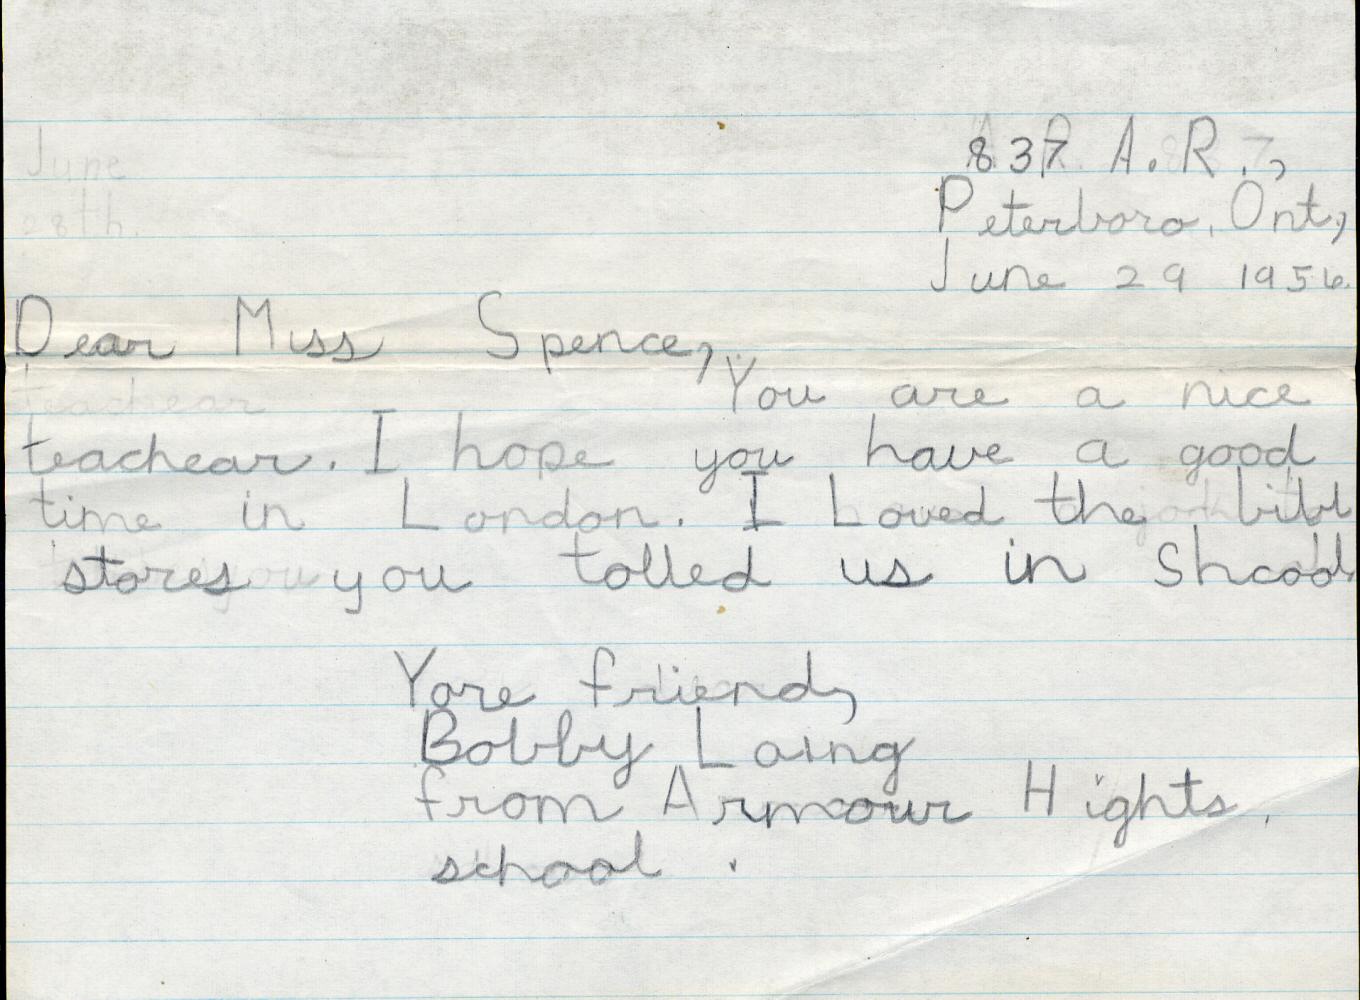 837 A.R.,
Peterboro, Ont,
June 29 1956.
Dear Miss Spence,
You are a nice
teachear. I hope you have a good
time in London. I Loved the bibl
stores you tolled us in Shcool
Yore friend,
Bobby Laing
from Armour Hights.
school.